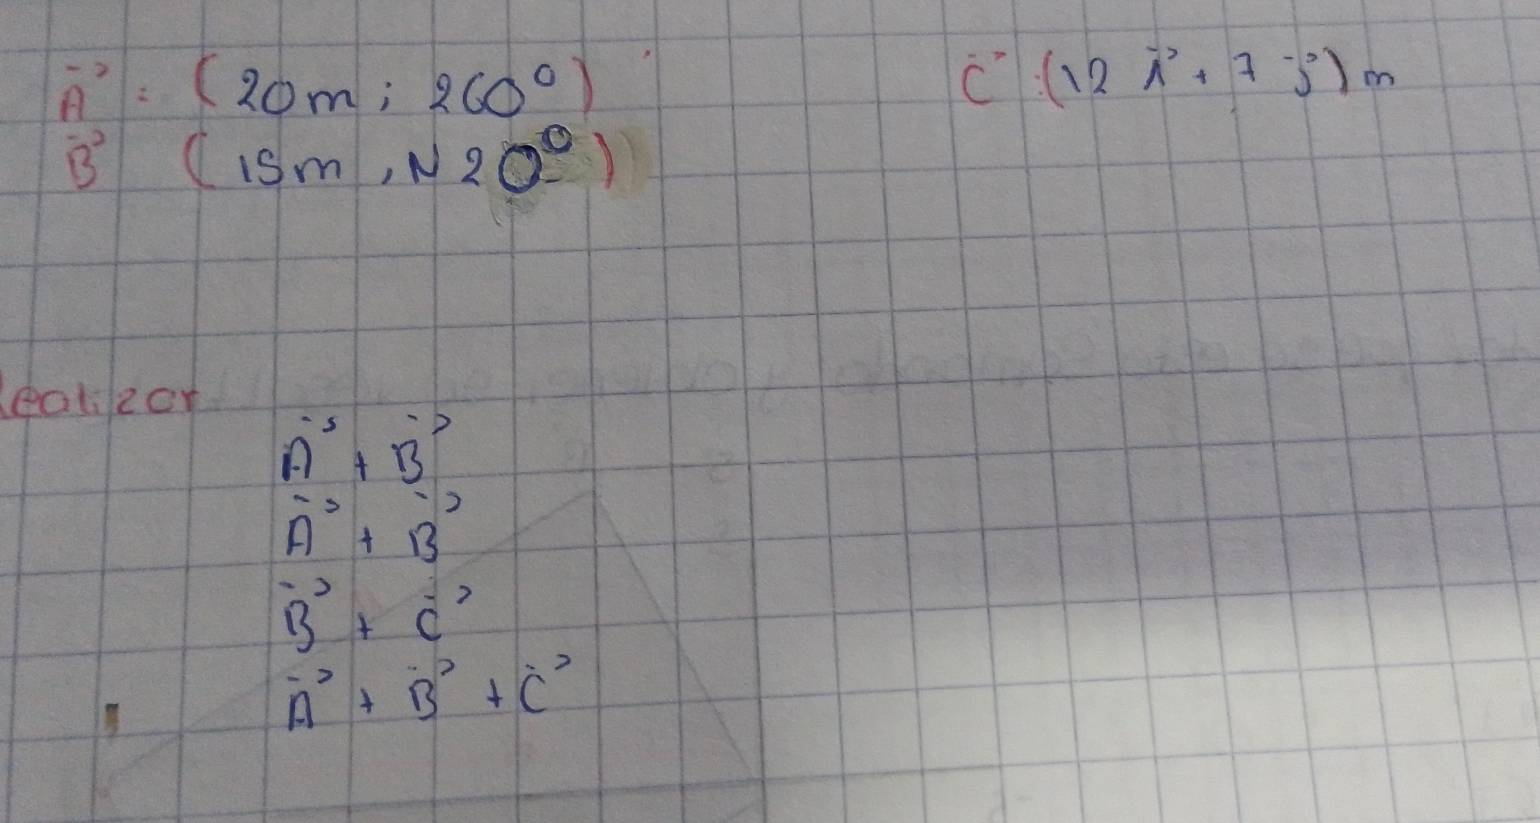 A⃗ : (20m; 260°) C⃗ :(12 i⃗ + 7 j⃗) m
B⃗ (15m, N 20°)
Realizar
A⃗ + B⃗
A⃗ + B⃗
B⃗ + C⃗
A⃗ + B⃗ + C⃗